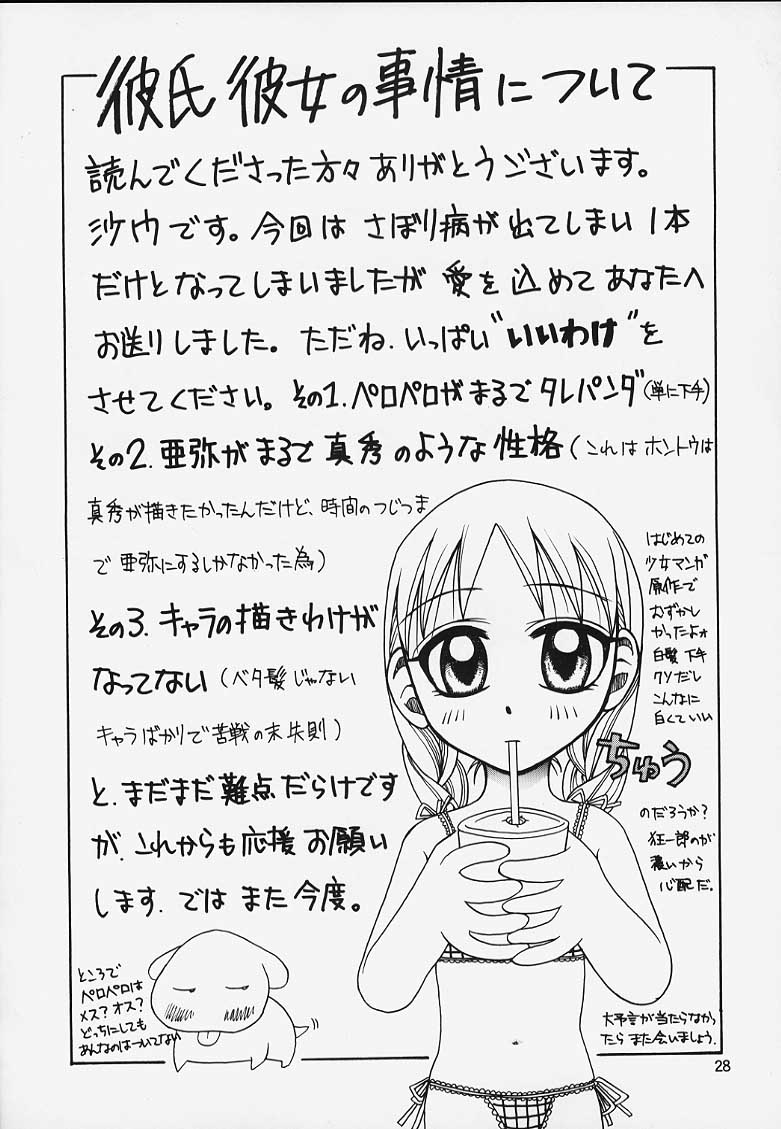 彼氏彼女の事情について
読んでくださった方々ありがとうございます。
沙ウです。今回は さぼり病が出てしまい1本
だけとなってしまいましたが 愛を込めてあなたへ
お送りしました。ただね、いっぱい“いいわけ”を
させてください。その1.ペロペロがまるでタレパンダ(単に下手)
その2.亜弥がまるで真秀のような性格(これはホントウは
真秀が描きたかったんだけど、時間のつじつま
で亜弥にするしかなかった為)
その3.キャラの描きわけが
なってない(ベタ髪じゃない
キャラばかりで苦戦の末失則)
と、まだまだ難点だらけです
が、これからも応援お願い
します、ではまた今度。
はじめての
少女マンガ
原作で
むずかし
かったよォ
白髪下手
クソだし
こんなに
白くていい
のだろうか?
狂一郎のが
濃いから
心配だ。
ちゅう
ところで
ペロペロは
メス?オス?
どっちにしても
あんなのはついてない
大予言が当たらなかっ
たら また会いましょう。
28